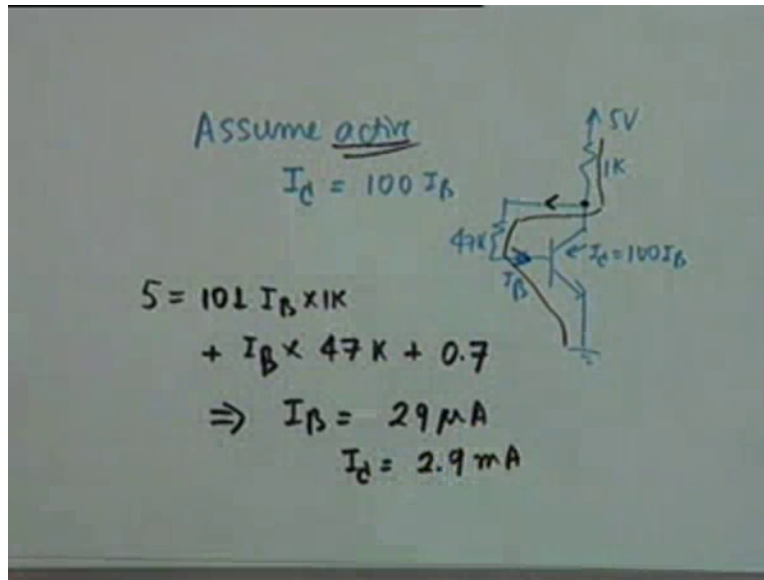 Assume active
I_C = 100 I_B
5V
1K
47K
I_C = 100 I_B
I_B
5 = 101 I_B × 1K
+ I_B × 47 K + 0.7
⇒ I_B = 29 μA
I_C = 2.9 mA